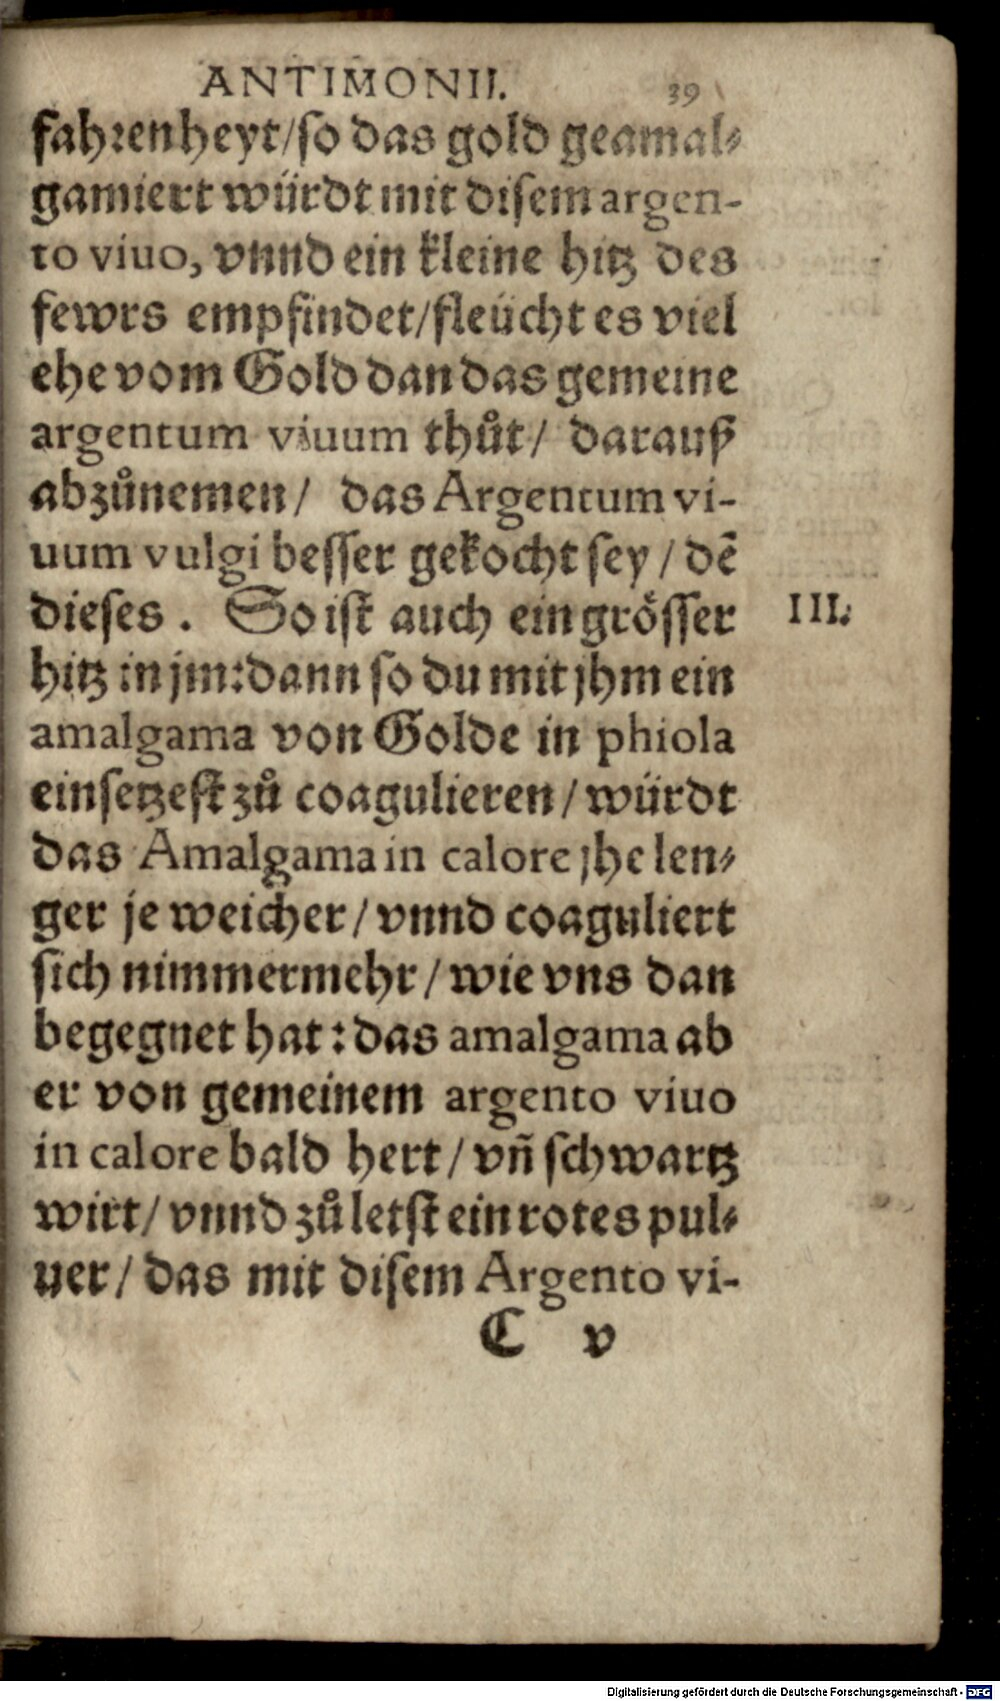 ANTIMONII. 39
fahrenheyt/so das gold geamal⸗
gamiert würdt mit disem argen-
to viuo, vnnd ein kleine hitz des
fewrs empfindet/fleücht es viel
ehe vom Gold dan das gemeine
argentum viuum thůt/ darauß
abzůnemen/ das Argentum vi-
uum vulgi besser gekocht sey/ dẽ
dieses. So ist auch ein grösser III.
hitz in jm:dann so du mit jhm ein
amalgama von Golde in phiola
einsetzest zů coagulieren/würdt
das Amalgama in calore jhe len⸗
ger je weicher/vnnd coaguliert
sich nimmermehr/wie vns dan
begegnet hat: das amalgama ab
er von gemeinem argento viuo
in calore bald hert/vñ schwartz
wirt/vnnd zů letst ein rotes pul⸗
uer/das mit disem Argento vi-
C v
Digitalisierung gefördert durch die Deutsche Forschungsgemeinschaft - DFG